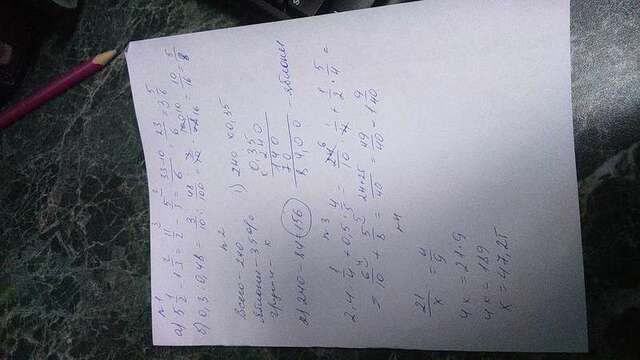 №1
а) 5 1/2 - 1 2/3 = 11/2 - 5/3 = 33-10/6 = 23/6 = 3 5/6
б) 0,3 : 0,48 = 3/10 : 48/100 = 3/10 · 100/48 = 10/16 = 5/8
№2
Всего - 240
Яблони - 35%
Груши - х
1) 240 x 0,35
0,35
x 240
140
70
84,00 - яблони
2) 240 - 84 = 156
№3
2,4 · 1/4 + 0,5 : 4/5 = 24/10 · 1/4 + 1/2 · 5/4 =
= 6/10 + 5/8 = 24+25/40 = 49/40 - 1 9/40
№4
21/x = 4/9
4x = 21·9
4x = 189
x = 47,25